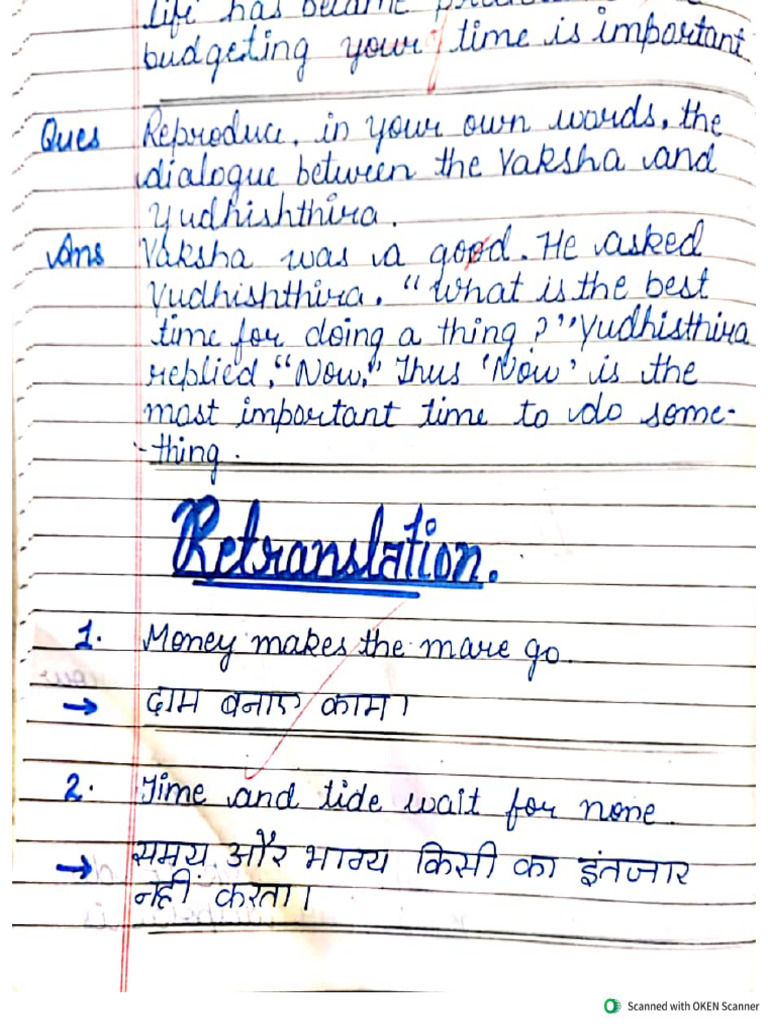 life has became
budgeting your time is important
Ques Reproduce, in your own words, the
dialogue between the Yaksha and
Yudhishthira.
Ans Yaksha was a good. He asked
Yudhishthira, "What is the best
time for doing a thing?" Yudhisthira
replied, "Now." Thus 'Now' is the
most important time to do some-
-thing.
Retranslation.
1. Money makes the mare go.
→ दाम बनाए काम।
2. Time and tide wait for none.
→ समय और भाग्य किसी का इंतजार
नहीं करता।
Scanned with OKEN Scanner